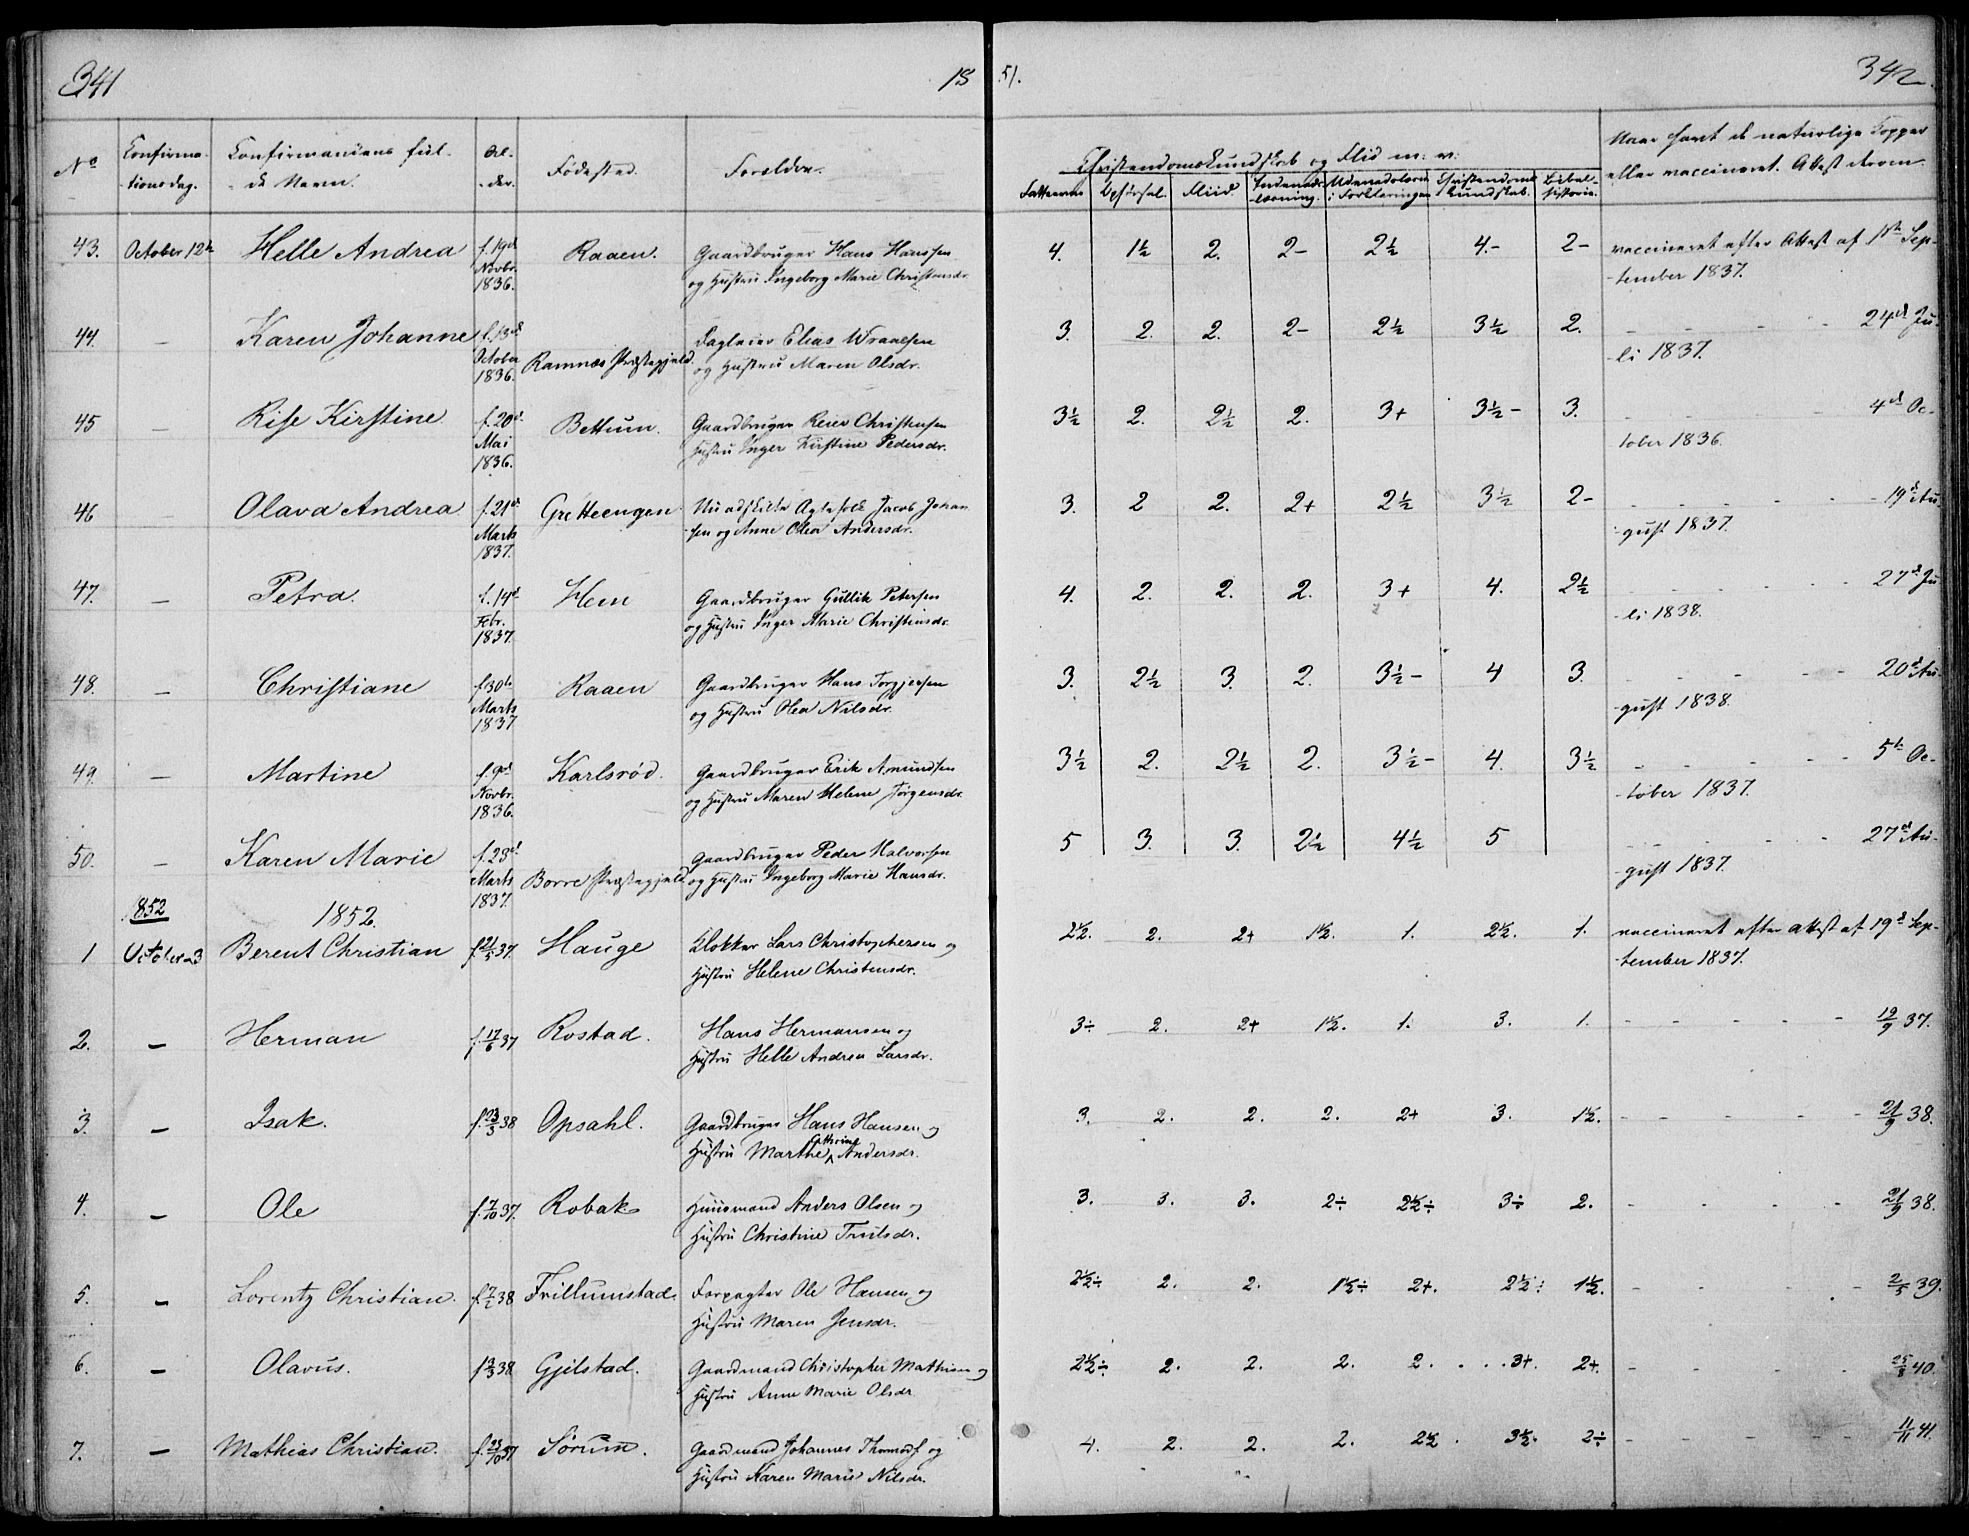 341 18 51. 342.
No Confirma- Confirmandens ful- Al- Fødested. Forældre. Christendomskundskab og Flid m: v: Naar havt de naturlige Kopper
-tionsdag. -de Navn. -der. Fatteevne Opførsel. Fliid. Indenads- Udenadslæsn Christendoms Bibel- eller vaccineret. Attest derom.
-læsning. i Forklaringen kundskab. historie.
43. October 12te Helle Andrea f. 19de Raaen. Gaardbruger Hans Hanssen 4. 1½ 2. 2- 2½ 4.- 2- vaccineret efter Attest af 1ste Sep-
Novbr. og Hustru Ingeborg Marie Christensdr. -tember 1837.
1836.
44. — Karen Johanne f. 13de Dagleier Elias Wraalsen 3. 2. 2. 2- 2½ 3½ 2. - - - - 24de Ju-
October Ramnæs Præstegjeld. og Hustru Maren Olsdr. -li 1837.
1836.
45 — Rise Kirstine f. 20de Bettum. Gaardbruger Reier Christensen 3½ 2. 2½ 2. 3+ 3½- 3. - - - - 4de Oc-
Mai Hustru Inger Kirstine Pedersdr. tober 1836.
1836.
46 Olava Andrea f. 21de Gretteengen Nu adskilte Ægtefolk Jacob Johan- 3. 2 2. 2+ 2½ 3½ 2- - - - - 19de Au-
Marts -sen og Anne Olea Andersdr. -gust 1837.
1837.
47. — Petra. f. 14de Hem Gaardbruger Gullik Petersen 4. 2. 2. 2. 3+ 4. 2½ - - - - 27de Ju
Febr. og Hustru Inger Marie Christensdr. -li 1838.
1837.
48. — Christiane f. 30te Raaen Gaardbruger Hans Torgjersen 3. 2½ 3. 2. 3½- 4 3. - - - - 20de Au-
Marts og Hustru Olea Nilsdr. -gust 1838.
1837
49. — Martine f. 9de Karlsrød. Gaardbruger Erik Amundsen 3½ 2. 2½ 2. 3½- 4. 3½ - - - - 5te Oc-
Novbr. og Hustru Maren Helene Jørgensdr. -tober 1837.
1836.
50. — Karen Marie f. 23de Gaardbruger Peder Halvorsen 5 3. 3. 2½ 4½ 5 - - - - 27de Au-
Marts Borre Præstegjeld og Hustru Ingeborg Marie Hansdr. -gust 1837.
1837.
1852 1852.
1 October 3 Berent Christian f. 21/5 37. Hauge Klokker Lars Christophersen og 2½. 2. 2+ 1½. 1. 2½. 1. vaccineret efter attest af 19de Sep-
Hustru Helene Christensdr. -tember 1837.
2. — Herman f. 17/6 37 Rostad. Hans Hermansen og 3÷ 2. 2+ 1½. 1. 3. 1. - - - - 19/9 37.
Hustru Helle Andrea Larsdr.
3. — Isak. f. 23/3 38 Opsahl. Gaardbruger Hans Hansen og 3. 2. 2. 2. 2+ 3. 1½. - - - - 21/9 38.
Hustru Marthe Cathrine Andersdr.
4. — Ole f. 7/10 37. Robak Huusmand Anders Olsen og 3. 3. 3. 2÷ 2½÷ 3÷ 2. - - - - 21/9 38.
Hustru Christine Trulsdr.
5. — Lorentz Christian. f. 7/2 38 Trillumstad. Forpagter Ole Hansen og 2½÷ 2. 2. 1½÷ 2+. 2½÷ 1½. - - - - 2/5 39.
Hustru Maren Jensdr.
6. — Olavus. f 2/3 38 Gjelstad. Gaardmand Christopher Mathisen og 2½÷ 2. 2. 2. 2. . . . 3+. 2+. - - - - 25/8 40.
Hustru Anne Marie Olsdr.
7. — Mathias Christian. f. 23/10 37 Sørum. Gaardmand Johannes og 4. 2. 2. 2. 2½ . 3½. 2÷ - - - - 11/11 41.
Hustru Karen Marie Nilsdr.